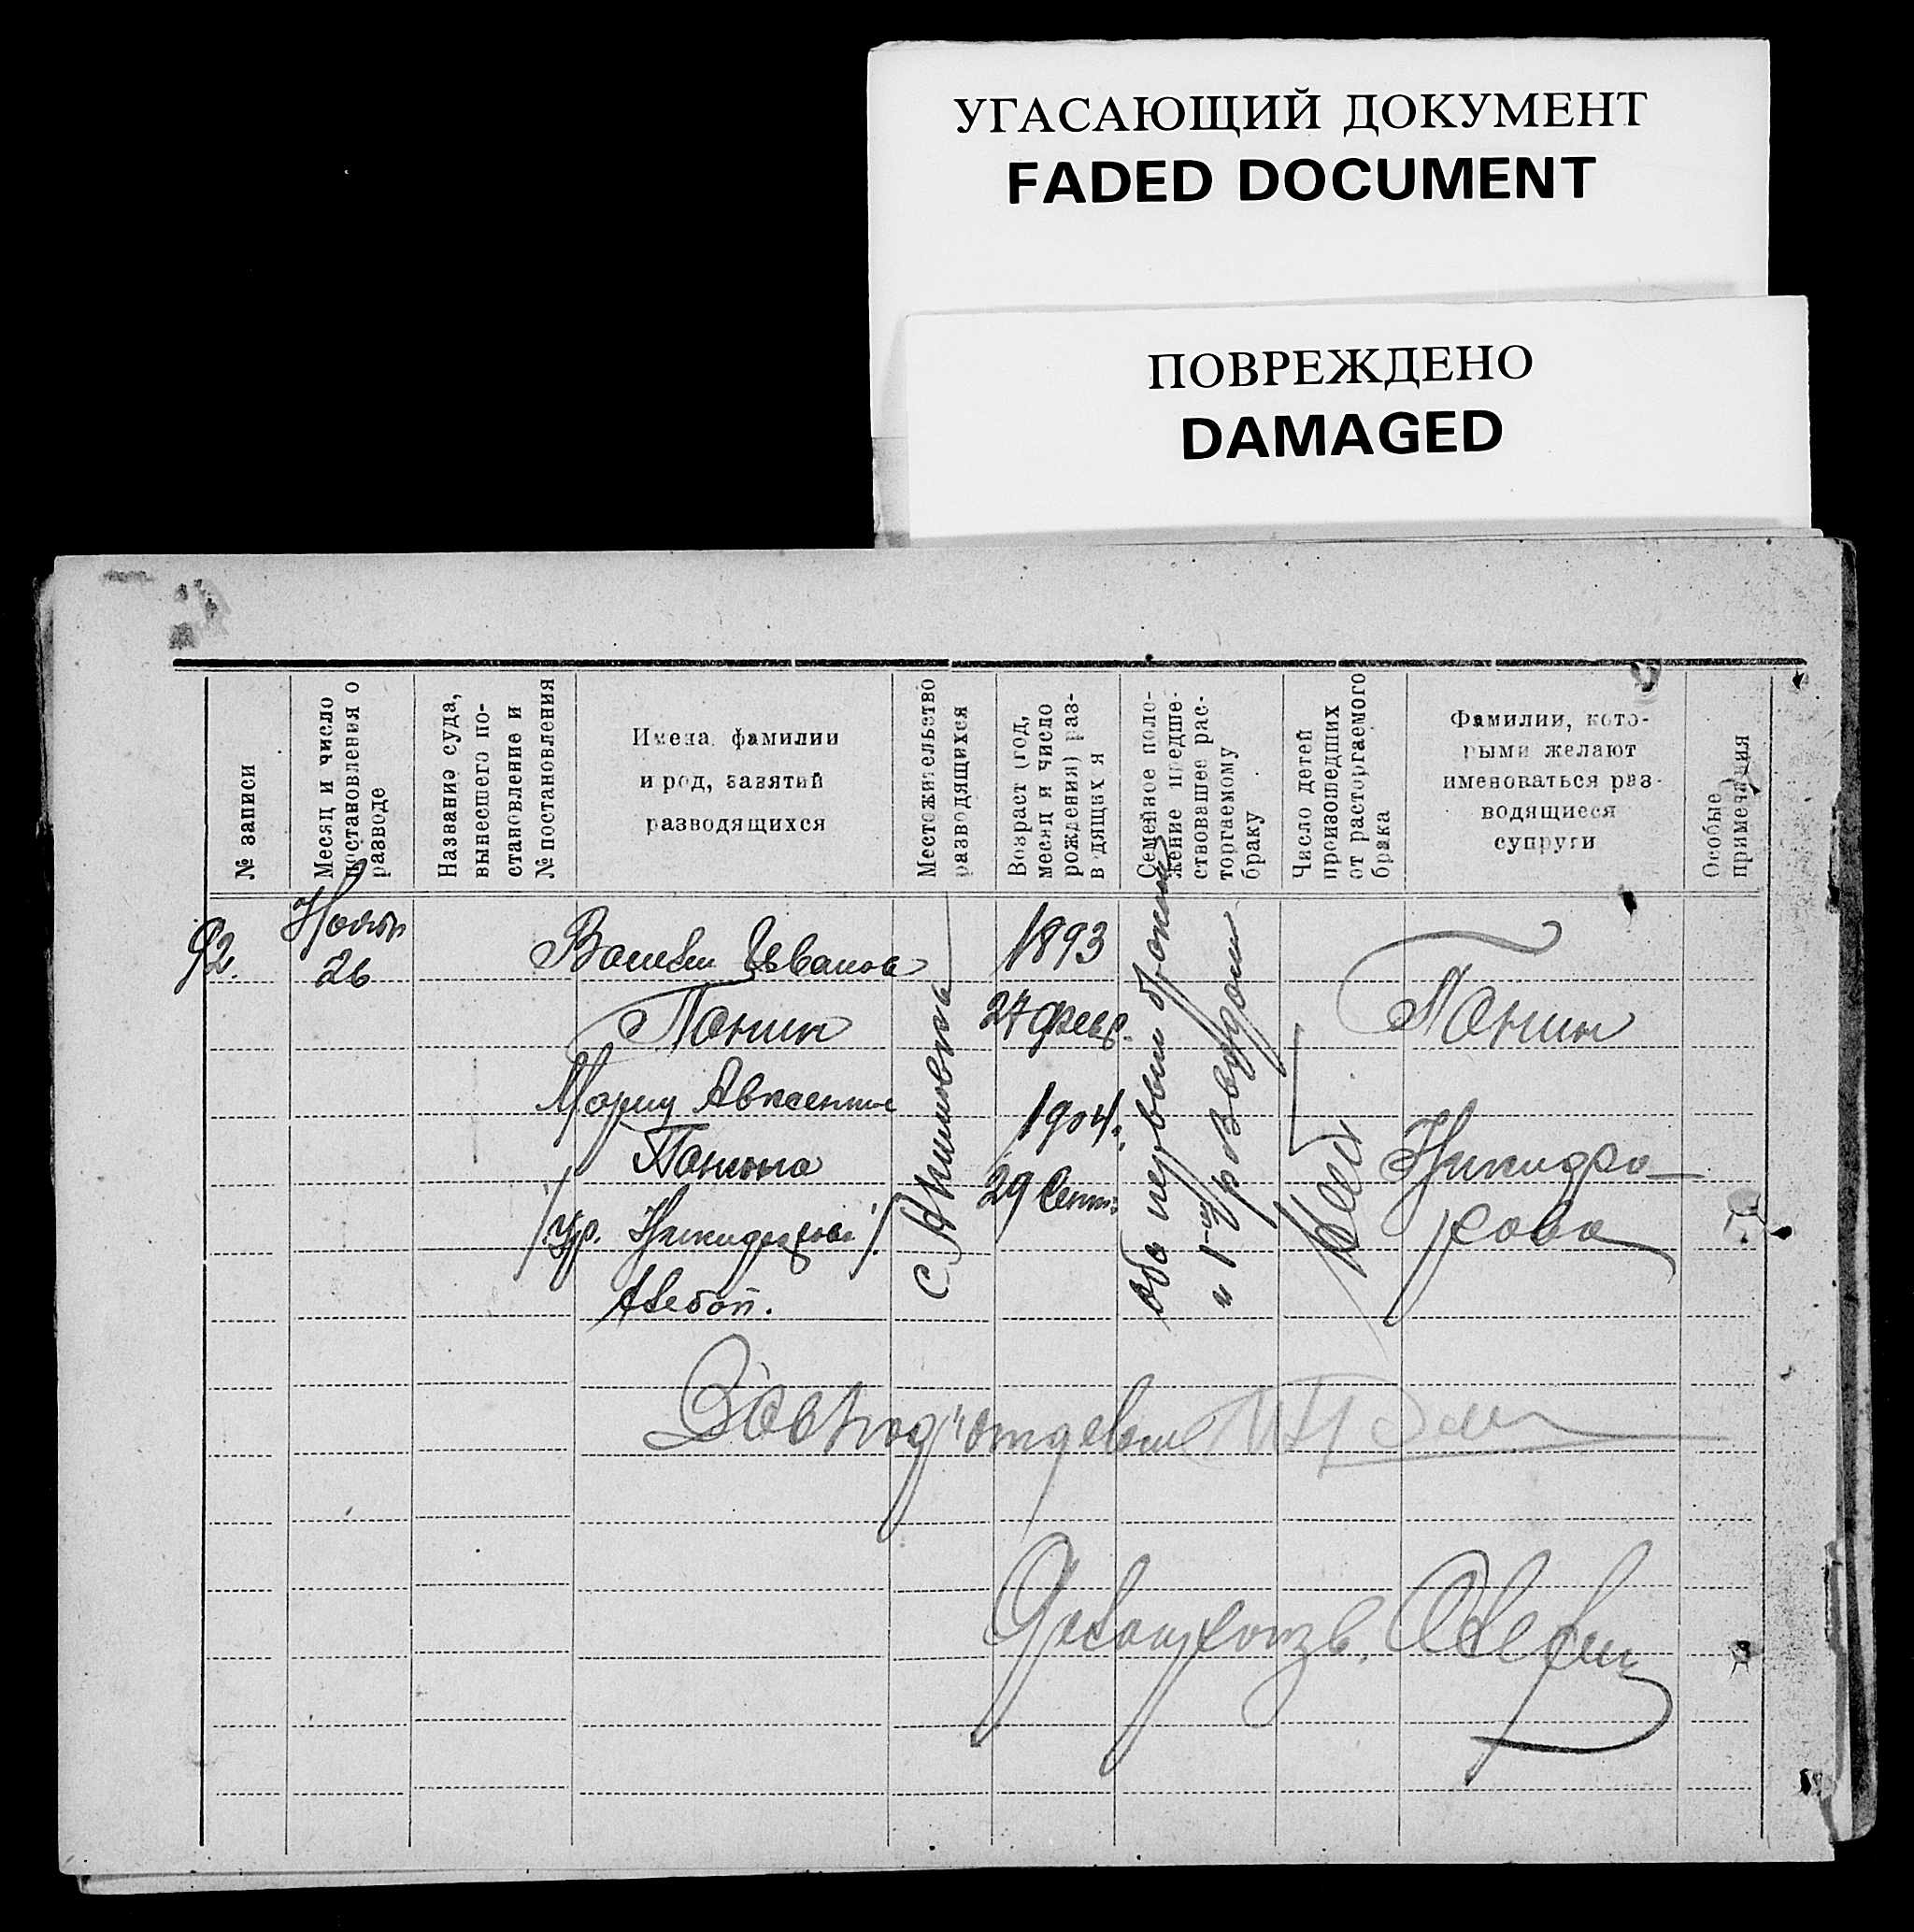 УГАСАЮЩИЙ ДОКУМЕНТ
FADED DOCUMENT
ПОВРЕЖДЕНО
DAMAGED
№ записи
Месяц и число
постановления о
разводе
Название суда,
вынесшего по-
становление и
№ постановления
Имена, фамилии
и род, занятий
разводящихся
Местожительство
разводящихся
Возраст (год,
месяц и число
рождения) раз-
водящихся
Семейное поло-
жение предше-
ствовавшее рас-
торгаемому
браку
Число детей
происшедших
от расторгаемого
брака
Фамилии, кото-
рыми желают
именоваться раз-
водящиеся
супруги
Особые
примечания
92.
Ноября
26
Иванов
Панин
Мария Авксентие
Панина
/ур. Никифорова/.
Хлебоп.
1893
27 февр.
1904.
29 Сент.
оба первым браком
и 1-ым разводом
Панин
Никифо-
рова
Зав. под'отделом
Делопроизв.